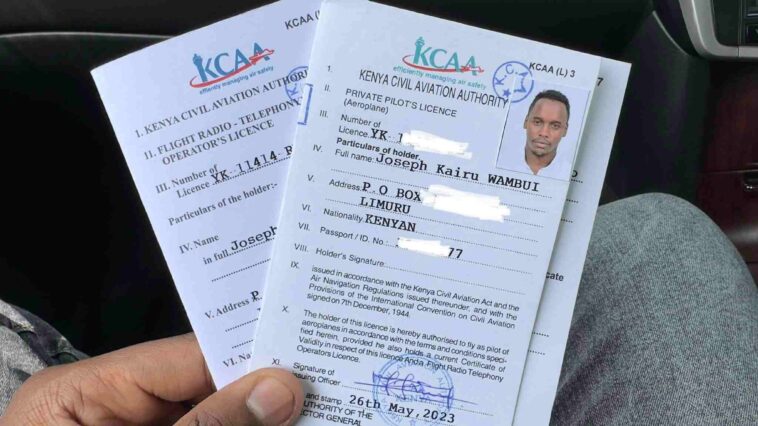 KCAA (L)
KCAA
efficiently managing air safety
I. KENYA CIVIL AVIATION AUTHOR
II. FLIGHT RADIO - TELEPHONY
OPERATOR'S LICENCE
III. Number of
Licence YK-11414 R
Particulars of the holder:-
IV. Name
in full Joseph
V. Address P.
VI. Nation
KCAA (L) 3
KCAA
efficiently managing air safety
I. KENYA CIVIL AVIATION AUTHORITY
II. PRIVATE PILOT'S LICENCE
(Aeroplane)
III. Number of
Licence YK-1
Particulars of holder
IV. Full name: Joseph Kairu WAMBUI
V. Address: P.O BOX
LIMURU
VI. Nationality: KENYAN
VII. Passport / ID. No.: 77
VIII. Holder's Signature:
IX. issued in accordance with the Kenya Civil Aviation Act and the
Air Navigation Regulations issued thereunder, and with the
Provisions of the International Convention on Civil Aviation
signed on 7th December, 1944.
X. The holder of this licence is hereby authorised to fly as pilot of
aeroplanes in accordance with the terms and conditions speci-
fied herein, provided he also holds a current Certificate of
Validity in respect of this licence And a Flight Radio Telephony
Operators Licence.
XI. Signature of
Issuing Officer
and stamp 26th May, 2023
AUTHORITY OF THE
DIRECTOR GENERAL
7
icate